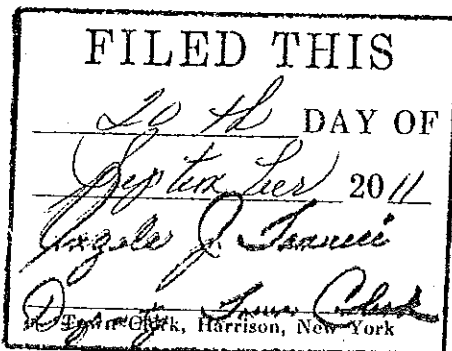 FILED THIS
20 th DAY OF
September 2011
Angela J.
Deputy Town Clerk
Town Clerk, Harrison, New York